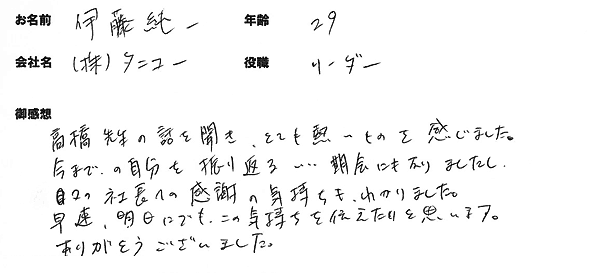 お名前 伊藤純一 年齢 29
会社名 (株)タニコー 役職 リーダー
御感想
高橋先生の話を聞き、とても熱いものを感じました。
今までの自分を振り返るいい機会にもなりましたし、
日々の社長への感謝の気持ちも、わかりました。
早速、明日にでも、この気持ちを伝えたいと思います。
ありがとうございました。